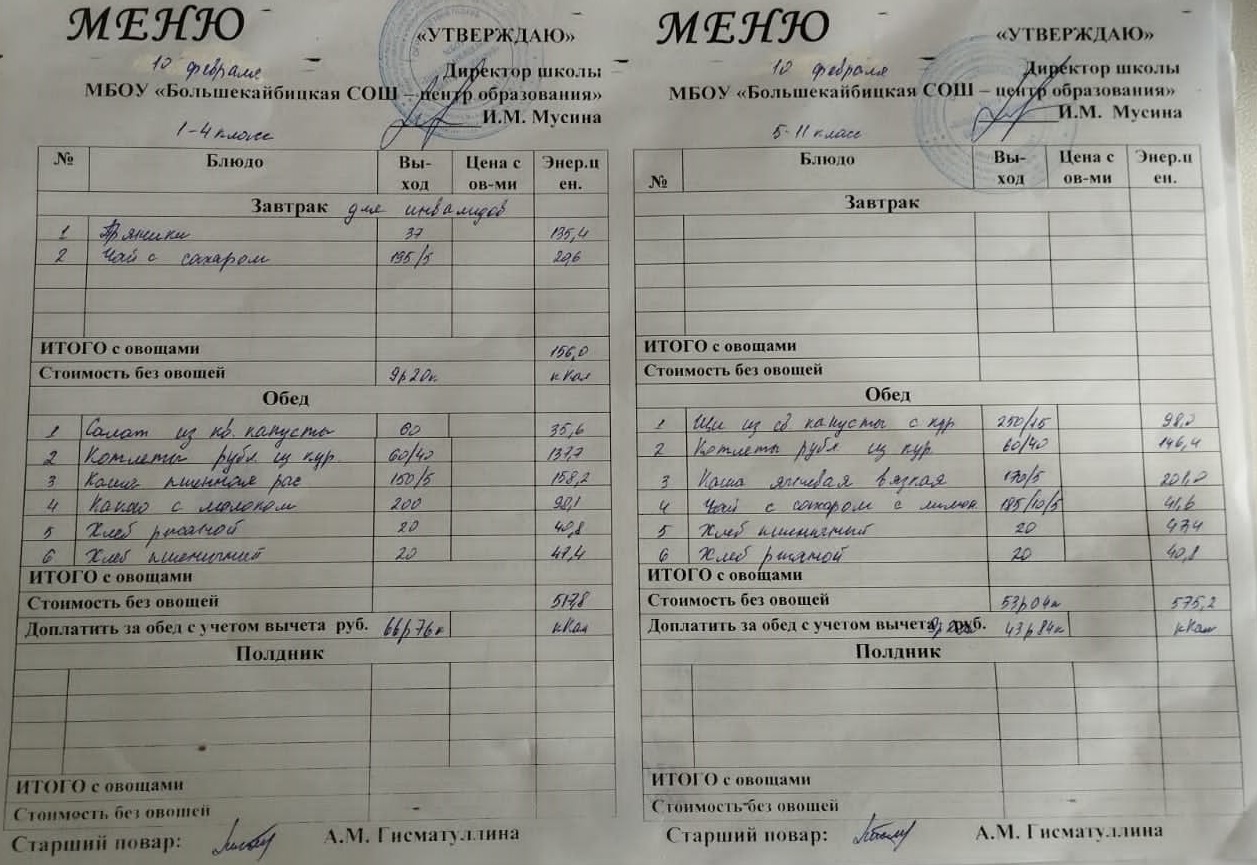 МЕНЮ
«УТВЕРЖДАЮ»
10 февраля
Директор школы
МБОУ «Большекайбицкая СОШ – центр образования»
И.М. Мусина
1-4 класс
№ Блюдо Вы-ход Цена с ов-ми Энер.цен.
Завтрак для инвалидов
1 Пряники 37 135,4
2 Чай с сахаром 195/5 20,6
ИТОГО с овощами 156,0
Стоимость без овощей 9р20к. кКал
Обед
1 Салат из кв. капусты 60 35,6
2 Котлеты рубл из кур. 60/40 137,7
3 Каша пшенная рас 150/5 158,2
4 Какао с молоком 200 98,1
5 Хлеб ржаной 20 40,8
6 Хлеб пшеничный 20 47,4
ИТОГО с овощами
Стоимость без овощей 517,8
Доплатить за обед с учетом вычета руб. 66р76к кКал
Полдник
ИТОГО с овощами
Стоимость без овощей
Старший повар: А.М. Гисматуллина
МЕНЮ
«УТВЕРЖДАЮ»
10 февраля
Директор школы
МБОУ «Большекайбицкая СОШ – центр образования»
И.М. Мусина
5-11 класс
№ Блюдо Вы-ход Цена с ов-ми Энер.цен.
Завтрак
ИТОГО с овощами
Стоимость без овощей
Обед
1 Щи из св капусты с кур 250/15 98,0
2 Котлеты рубл из кур. 60/40 146,4
3 Каша ячневая вязкая 170/5 201,0
4 Чай с сахаром с лимон 185/10/5 41,6
5 Хлеб пшеничный 20 47,4
6 Хлеб ржаной 20 40,8
ИТОГО с овощами
Стоимость без овощей 53р04к 575,2
Доплатить за обед с учетом вычета руб. 43р84к кКал
Полдник
ИТОГО с овощами
Стоимость без овощей
Старший повар: А.М. Гисматуллина